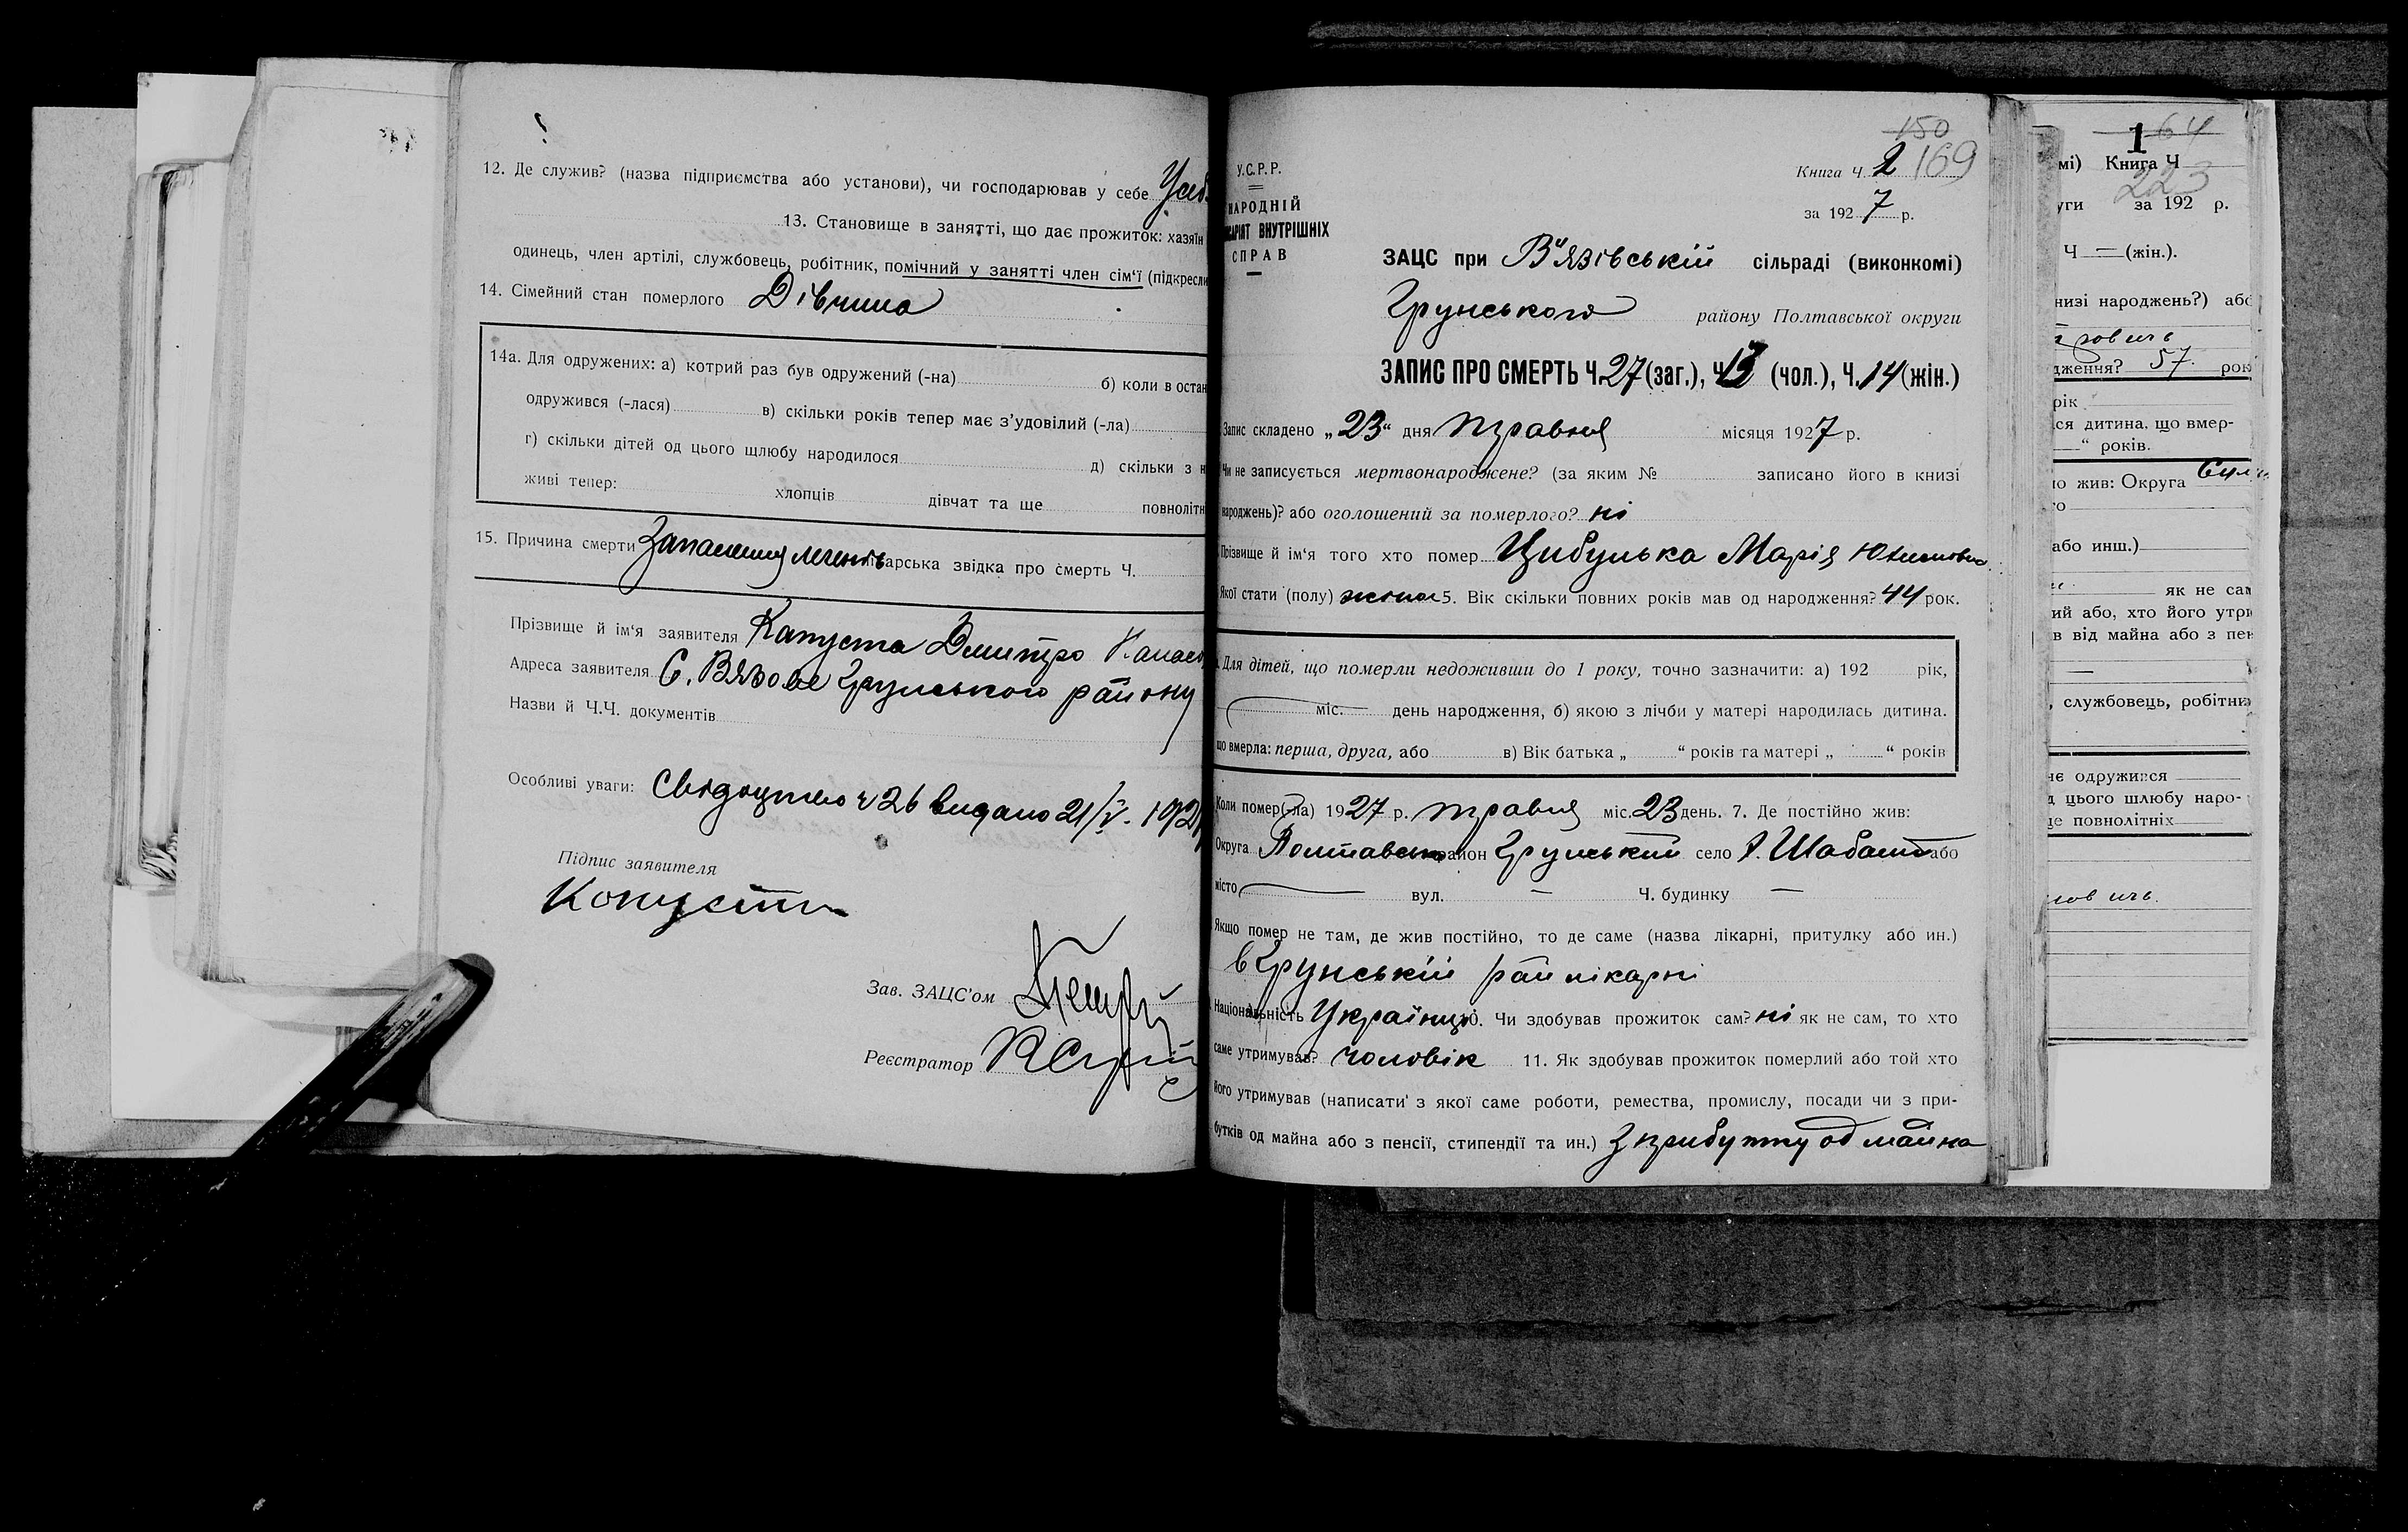 12. Де служив? (назва підприємства або установи), чи господарював у себе Усеб
13. Становище в занятті, що дає прожиток: хазяїн
одинець, член артілі, службовець, робітник, помічний у занятті член сім'ї (підкресли
14. Сімейний стан померлого Дівчина
14а. Для одружених: а) котрий раз був одружений (-на) б) коли в остан
одружився (-лася) в) скільки років тепер має з'удовілий (-ла)
г) скільки дітей од цього шлюбу народилося д) скільки з н
живі тепер: хлопців дівчат та ще повнолітн
15. Причина смерти Запалення легенів арська звідка про смерть Ч.
Прізвище й ім'я заявителя Капуста Дмитро Панасо
Адреса заявителя С. Вязове Грунського району
Назви й Ч.Ч. документів
Особливі уваги: Свідоцтво ч 26 видано 21/V. 192
Підпис заявителя
Капуста
Зав. ЗАЦС'ом
Реєстратор
150
У.С.Р.Р.
Книга Ч. 2 169
НАРОДНІЙ
за 192 7 р.
АРІЯТ ВНУТРІШНІХ
СПРАВ
ЗАЦС при В'язівській сільраді (виконкомі)
Грунського району Полтавської округи
ЗАПИС ПРО СМЕРТЬ Ч. 27 (заг.), Ч. 13 (чол.), Ч. 14 (жін.)
Запис складено „23“ дня травня місяця 1927 р.
Чи не записується мертвонароджене? (за яким № записано його в книзі
народжень)? або оголошений за померлого? ні
Прізвище й ім'я того хто помер Цибулька Марія
Якої стати (полу) 5. Вік скільки повних років мав од народження? 44 рок.
Для дітей, що померли недоживши до 1 року, точно зазначити: а) 192 рік,
міс. день народження, б) якою з лічби у матері народилась дитина.
що вмерла: перша, друга, або в) Вік батька „ “ років та матері „ “ років
Коли помер(-ла) 1927 р. травня міс. 23 день. 7. Де постійно жив:
Округа Полтавськ район Грунський село або
місто — вул. — Ч. будинку —
Якщо помер не там, де жив постійно, то де саме (назва лікарні, притулку або ин.)
в Грунській рай лікарні
Національність Українц 10. Чи здобував прожиток сам? ні як не сам, то хто
саме утримував? чоловік 11. Як здобував прожиток померлий або той хто
його утримував (написати з якої саме роботи, ремества, промислу, посади чи з при-
бутків од майна або з пенсії, стипендії та ин.) З прибутку од майна
1 64
мі) Книга Ч
223
уги за 192 р.
Ч — (жін.).
низі народжень?) або
дження? 57 рок
рік
ся дитина, що вмер-
— “ років.
о жив: Округа
го
або инш.)
як не сам
ий або, хто його утри
в від майна або з пен
—
, службовець, робітни
не одружився
д цього шлюбу наро-
ще повнолітніх